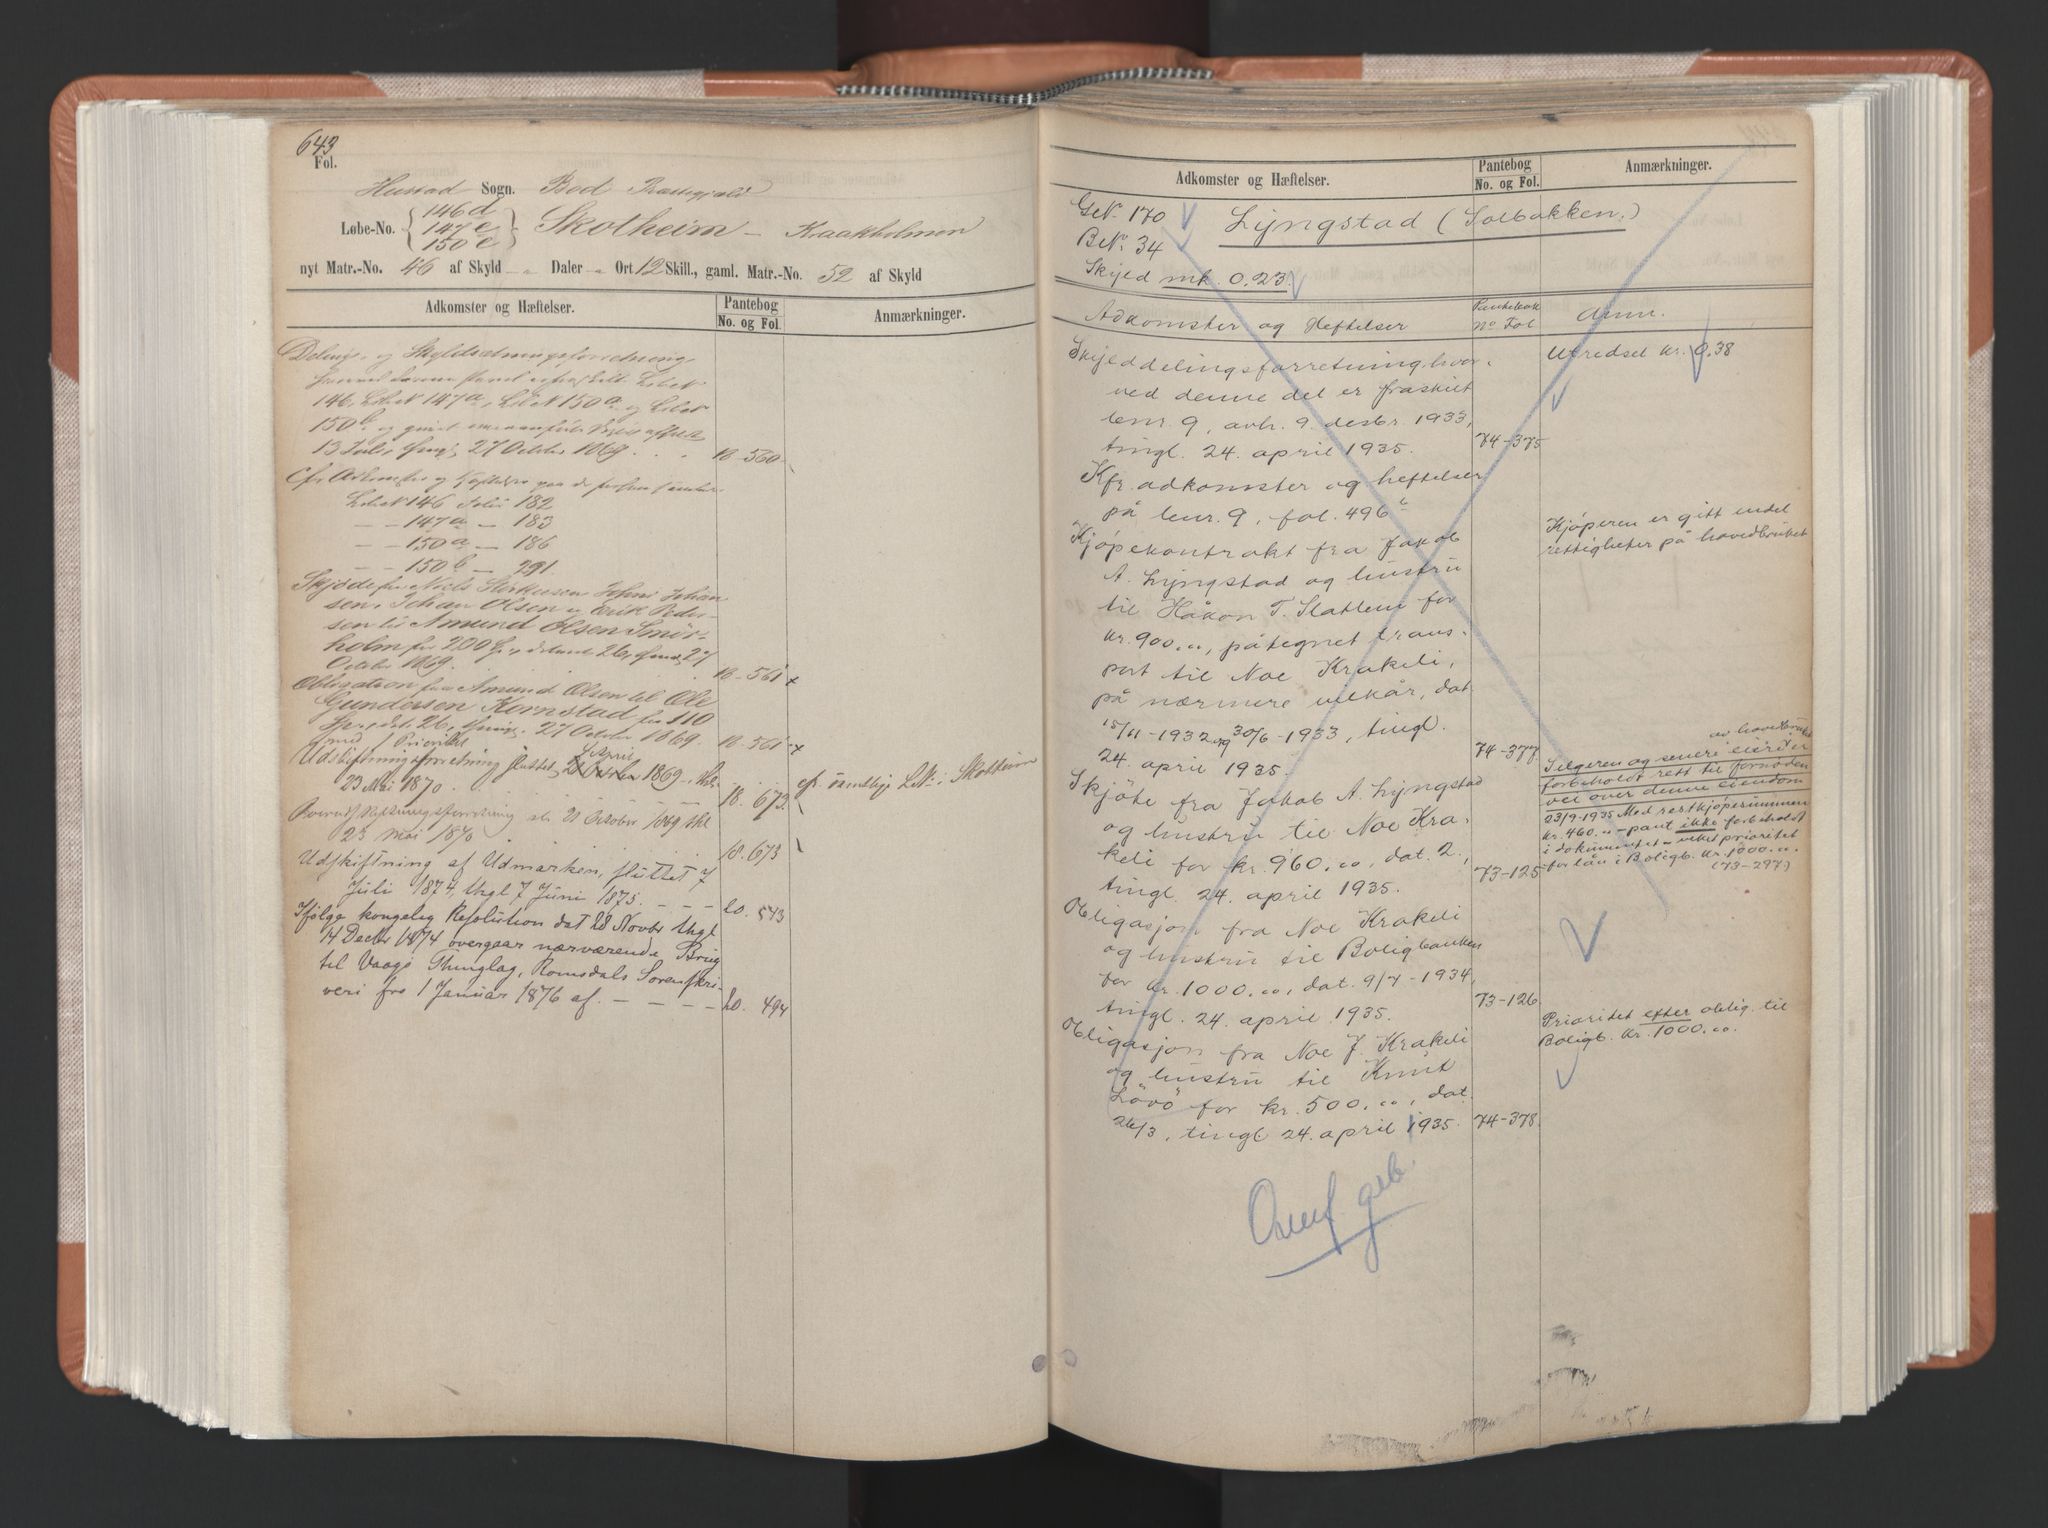 643
Fol.
Hustad Sogn. Bod Præstegjeld
Løbe-No. { 146d 147e 150e } Skotheim – Kraakholmen
nyt Matr.-No. 46 af Skyld „ Daler „ Ort 12 Skill., gaml. Matr.-No. 52 af Skyld
Adkomster og Hæftelser.
Pantebog
No. og Fol.
Anmærkninger.
Delings- og Skyldsætningsforretning,
hvorved denne Part er fraskilt LøbeN
146, LøbeN 147a, LøbeN 150a og LøbeN
150b og givet
13 Juli, thingl. 27 October 1869. . . 18-560
Cfr. Adkomster og Hæftelser paa
LøbeN 146 Folio 182
– – 147a – 183
– – 150a – 186
– – 150b – 291.
Skjøde fra Niels Johan
sen, Johan Olsen og Erik Peder-
sen til Amund Olsen Smör-
holm for 200 Sp., dateret 26, thingl. 27
October 1869. 18-561 x
Obligation fra Amund Olsen til Ole
Gundersen Kornstad for 110
Sp., dat. 26, thingl. 27 October 1869. 18-561 x
med 1 Prioritet
Udskiftningsforretning sluttet 2 April 1869 – thgl.
23 Mai 1870 . . . . 18. 673. cfr. Skotheim
Overudskiftningsforretning 20 October 1869 thgl
23 Mai 1870 . 18. 673
Udskiftning af Udmarken, sluttet 7
Juli 1874, thgl 7 Juni 1875. – – – 20. 543
Ifølge kongelig Resolution dat 28 Novbr thgl
14 Decbr 1874 overgaar nærværende Brug
til Vaagø Thinglag, Romsdals Sorenskri-
veri fra 1 Januar 1876 af. – – – – 20. 494
Adkomster og Hæftelser.
Pantebog
No. og Fol.
Anmærkninger.
GNr. 170
BNr. 34
Lyngstad (Solbakken.)
Skyld mk. 0.23.
Adkomster og Heftelser
Pantebok
No Fol
Anm.
Skylddelingsforretning, hvor-
ved denne del er fraskilt
bnr. 9, avh. 9. desbr. 1933,
tingl. 24. april 1935. 74-375
Utredset kr. 0,38
Kfr. adkomster og heftelser
på bnr. 9, fol. 496
Kjøpekontrakt fra Jakob
A. Lyngstad og hustru
til Håkon T. Slatlem for
kr. 900.00, påtegnet trans-
port til Noe Krakeli,
på nærmere vilkår, dat.
15/11-1932 og 30/6-1933, tingl.
24. april 1935. 74-377
Kjøperen er gitt endel
rettigheter på hovedbruket
Skjøte fra Jakob A. Lyngstad
og hustru til Noe Kra-
keli for kr. 960.00, dat. 2.,
tingl. 24. april 1935. 73-125
av hovedbruket
Selgeren og senere eiere er
forbeholdt rett til fornøden
vei over denne eiendom
23/9-1935 Med restkjøpesummen
kr. 460.00 – pant ikke forbeholdt
i dokumentet – viket prioritet
for lån i Boligb. kr. 1000.00.
(73-297)
Obligasjon fra Noe Krakeli
og hustru til Boligbanken
for kr. 1000.00, dat. 9/7-1934,
tingl. 24. april 1935. 73-126.
Obligasjon fra Noe J. Krakeli
og hustru til Knut
Lövö for kr. 500.00, dat.
26/3, tingl. 24. april 1935. 74-378.
Prioritet efter oblig. til
Boligb. kr. 1000.00.
Overf. geb.